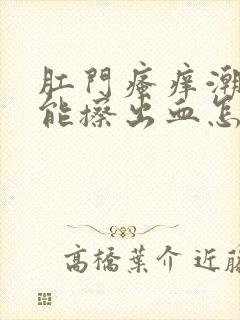 肛門瘙痒潮
能擦出血怎
高橋葉介 近藤